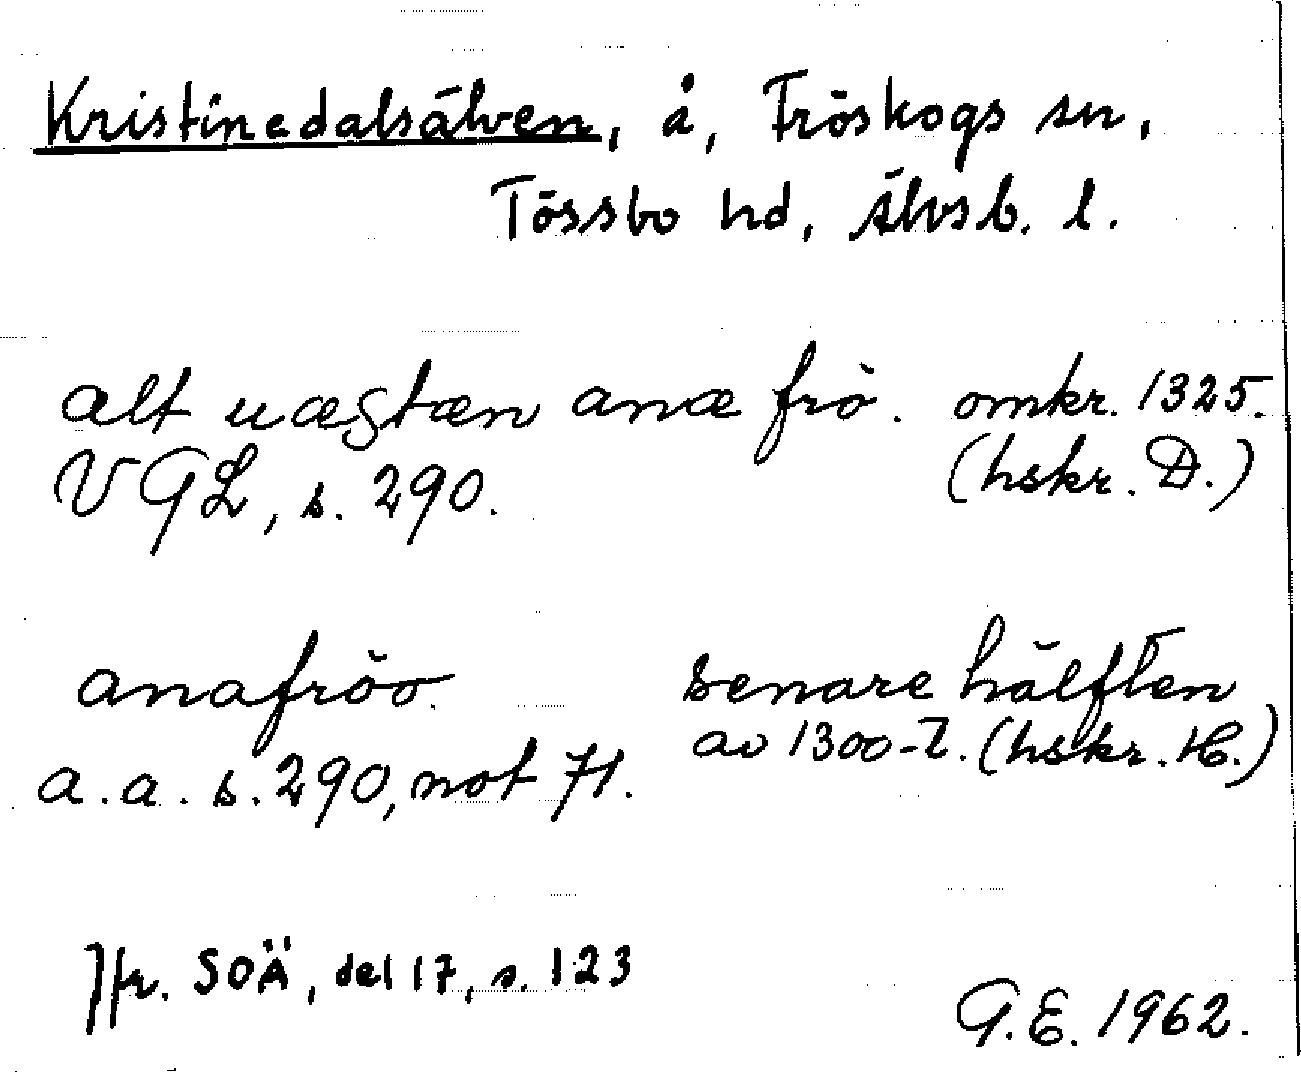 Kristinedalsälven, å, Tröskogs sn,
Tössbo hd, Älvsb. l.
alt uæstæn anæ frö. omkr. 1325.
VGL, s. 290. (hskr. D.)
anafröo. senare hälften
a.a. s. 290, not 71. av 1300-t. (hskr. H.)
Jfr. SOÄ, del 17, s. 123
G.E. 1962.